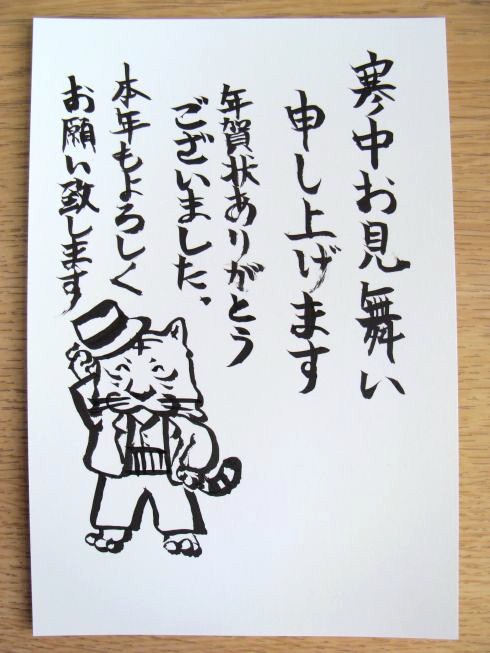 寒中お見舞い
申し上げます
年賀状ありがとう
ございました、
本年もよろしく
お願い致します